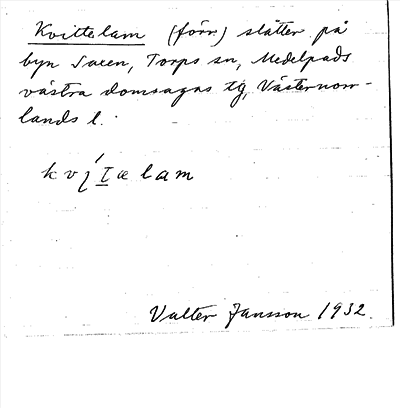 Kvittelam (förr) slåtter på
byn Saxen, Torps sn, Medelpads
västra domsagas tg, Västernorr-
lands l.
Valter Jansson 1932.